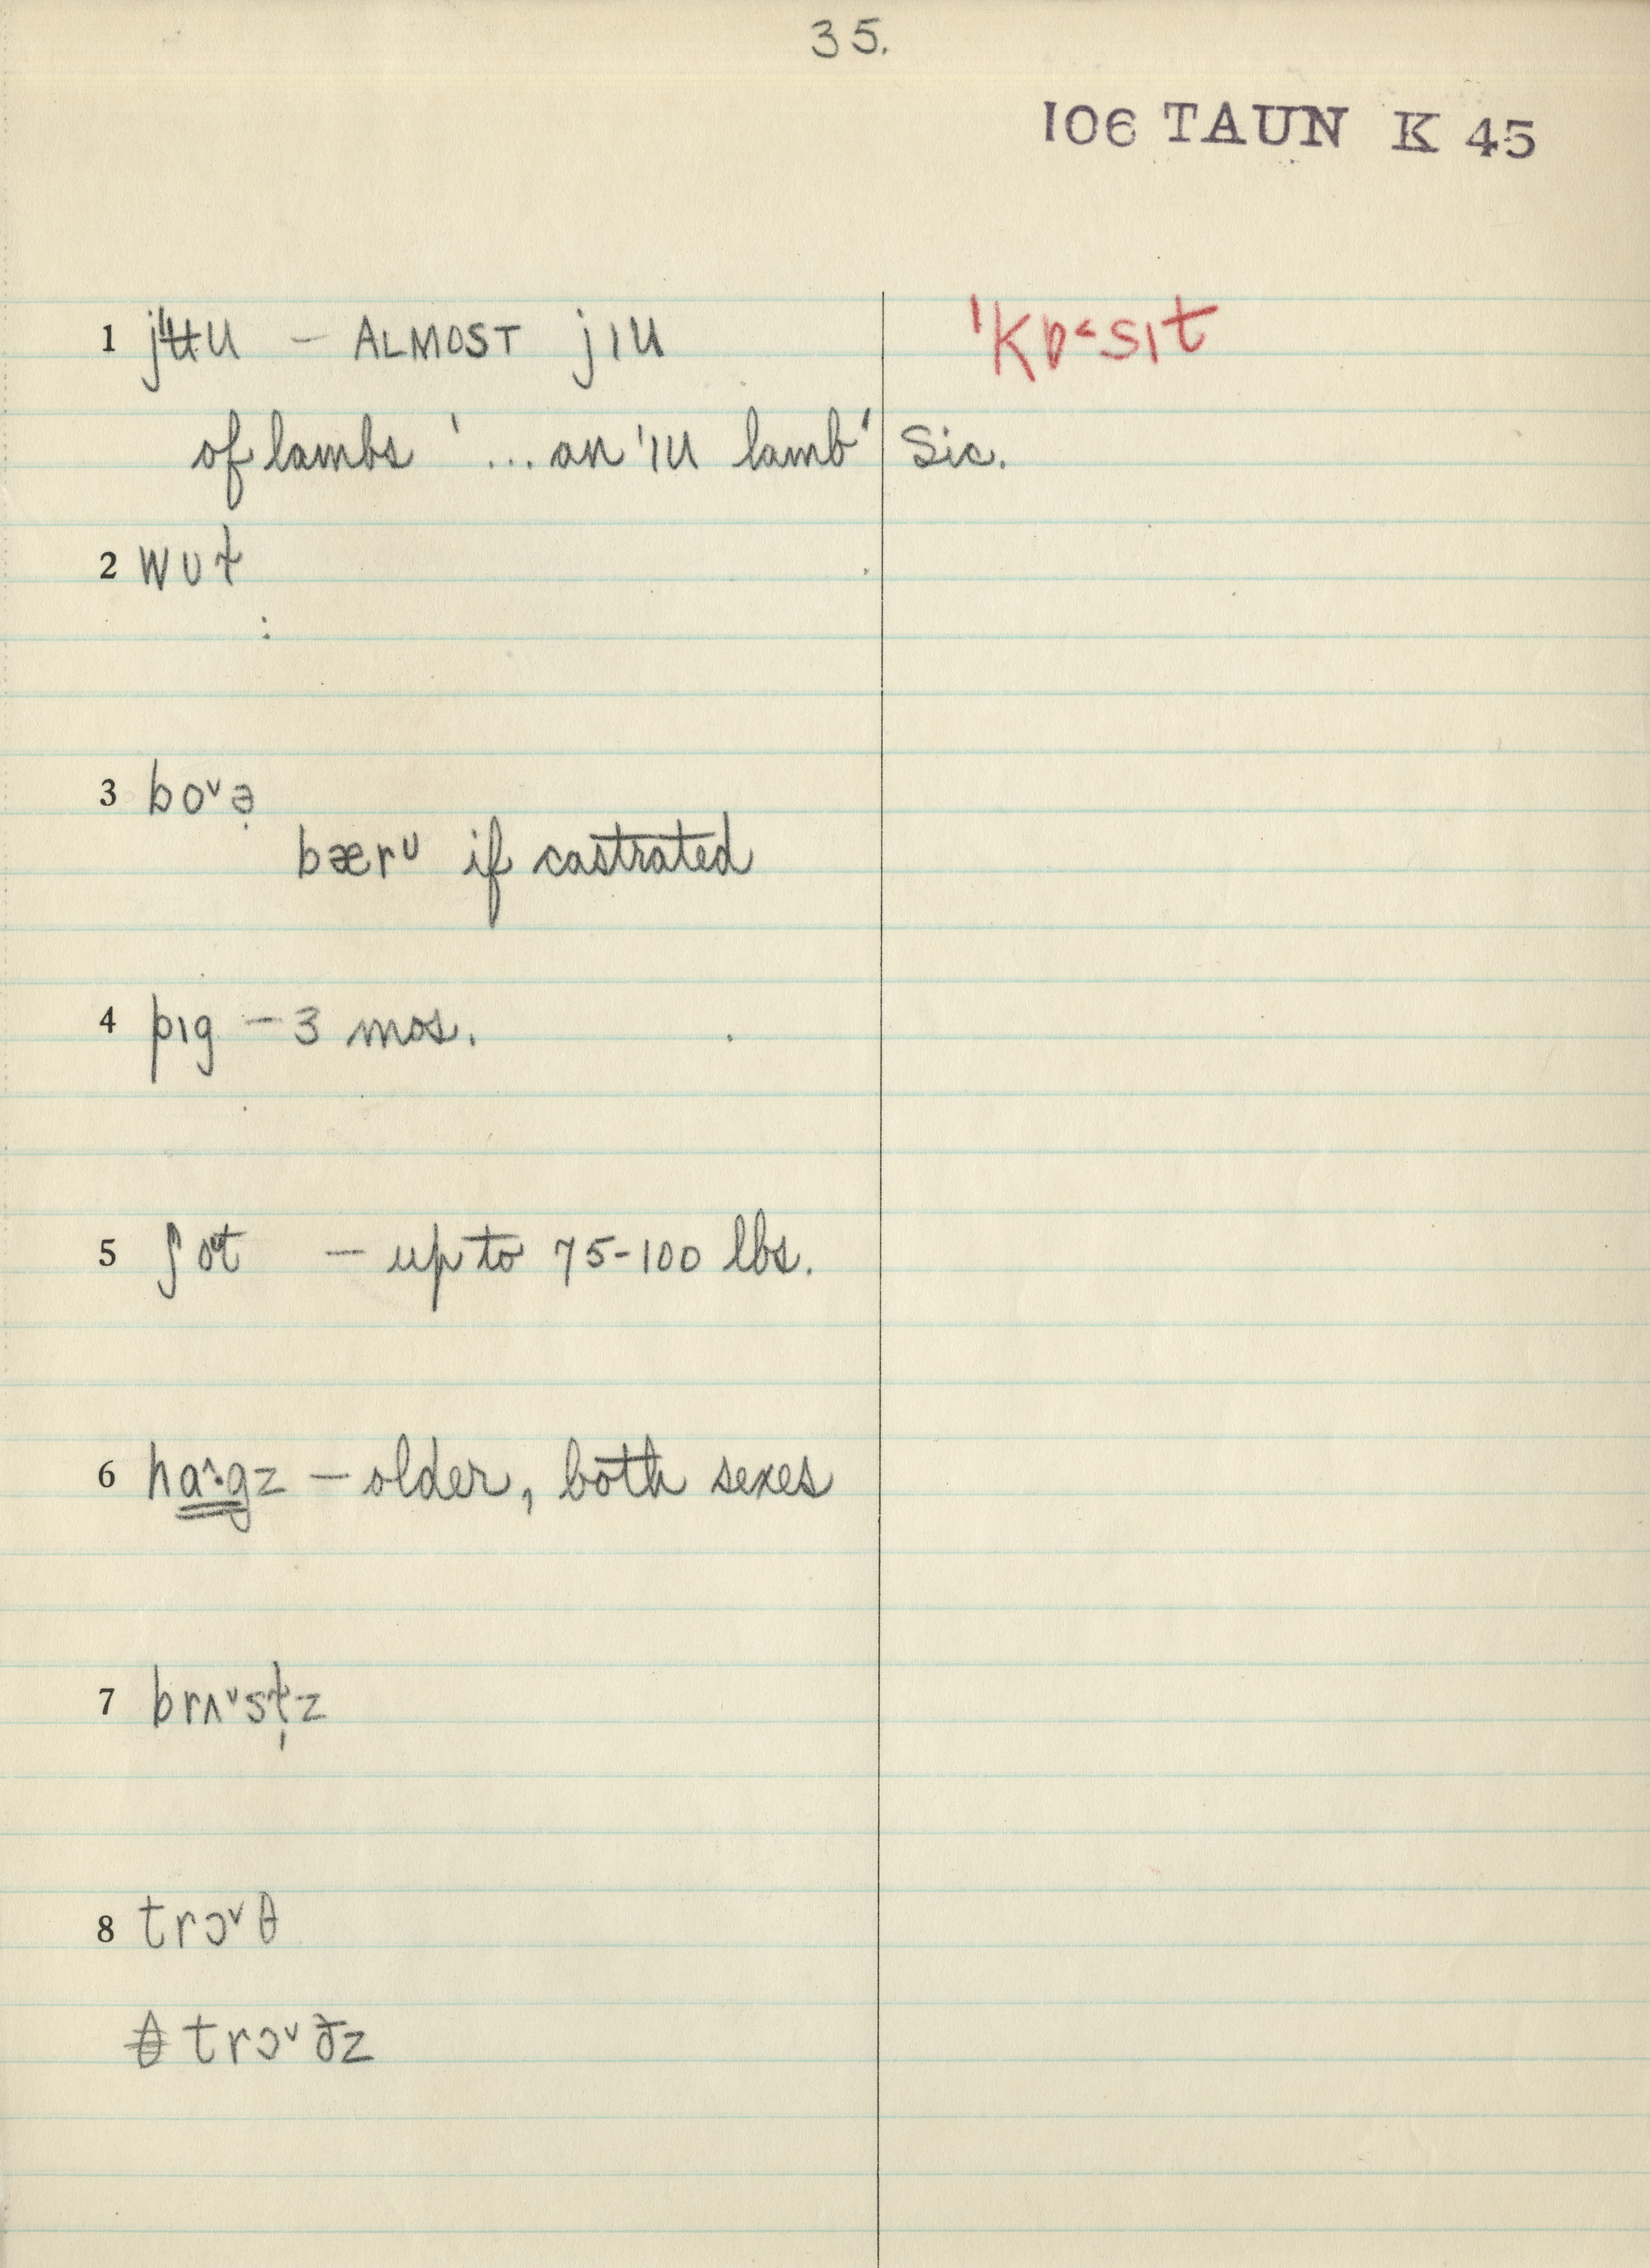 35.
106 TAUN K 45
1 jʉu – ALMOST jıu ˈkɒ˂sɪt
of lambs '... an ˈɪu lamb' Sic.
2 wʊt
3 bo˅ə̣
bærᶷ if castrated
4 pɪg – 3 mos.
5 ʃoᶷt – up to 75-100 lbs.
6 ha˄·gz – older, both sexes
7 brʌ˅sɫ̩z
8 trɔ˅θ
trɔ˅ðz